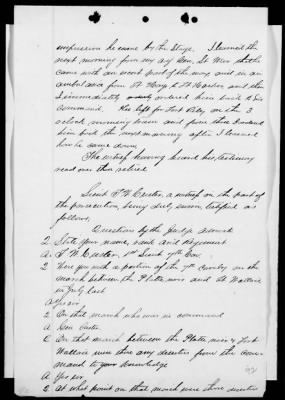 impression he came by the Stage. I learned the
next morning from my Adj Gen, Lt Weir that he
came with an escort part of the way and in an
ambulance from Ft Hays to Ft Harker and then
I immediately ordered him back to his
command. He left for Fort Riley on the 3
o'clock morning train and from there I ordered
him back the next morning after I learned
how he came down.
The witness having heard his testimony
read over then retired
Lieut T W Custer, a witness on the part of
the prosecution, being duly sworn, testified as
follows,
Questions by the Judge Advocate
Q State your name, rank and Regiment
A. T. W. Custer, 1st Lieut 7th Cav.
Q Were you with a portion of the 7th Cavalry on the
march between the Platte river and Ft Wallace
in July last
A Yes sir.
Q On that march who was in command
A Gen Custer
Q On that march between the Platte river & Fort
Wallace were there any deserters from the com-
mand to your knowledge
A Yes sir
Q At what point on that march were there deserters